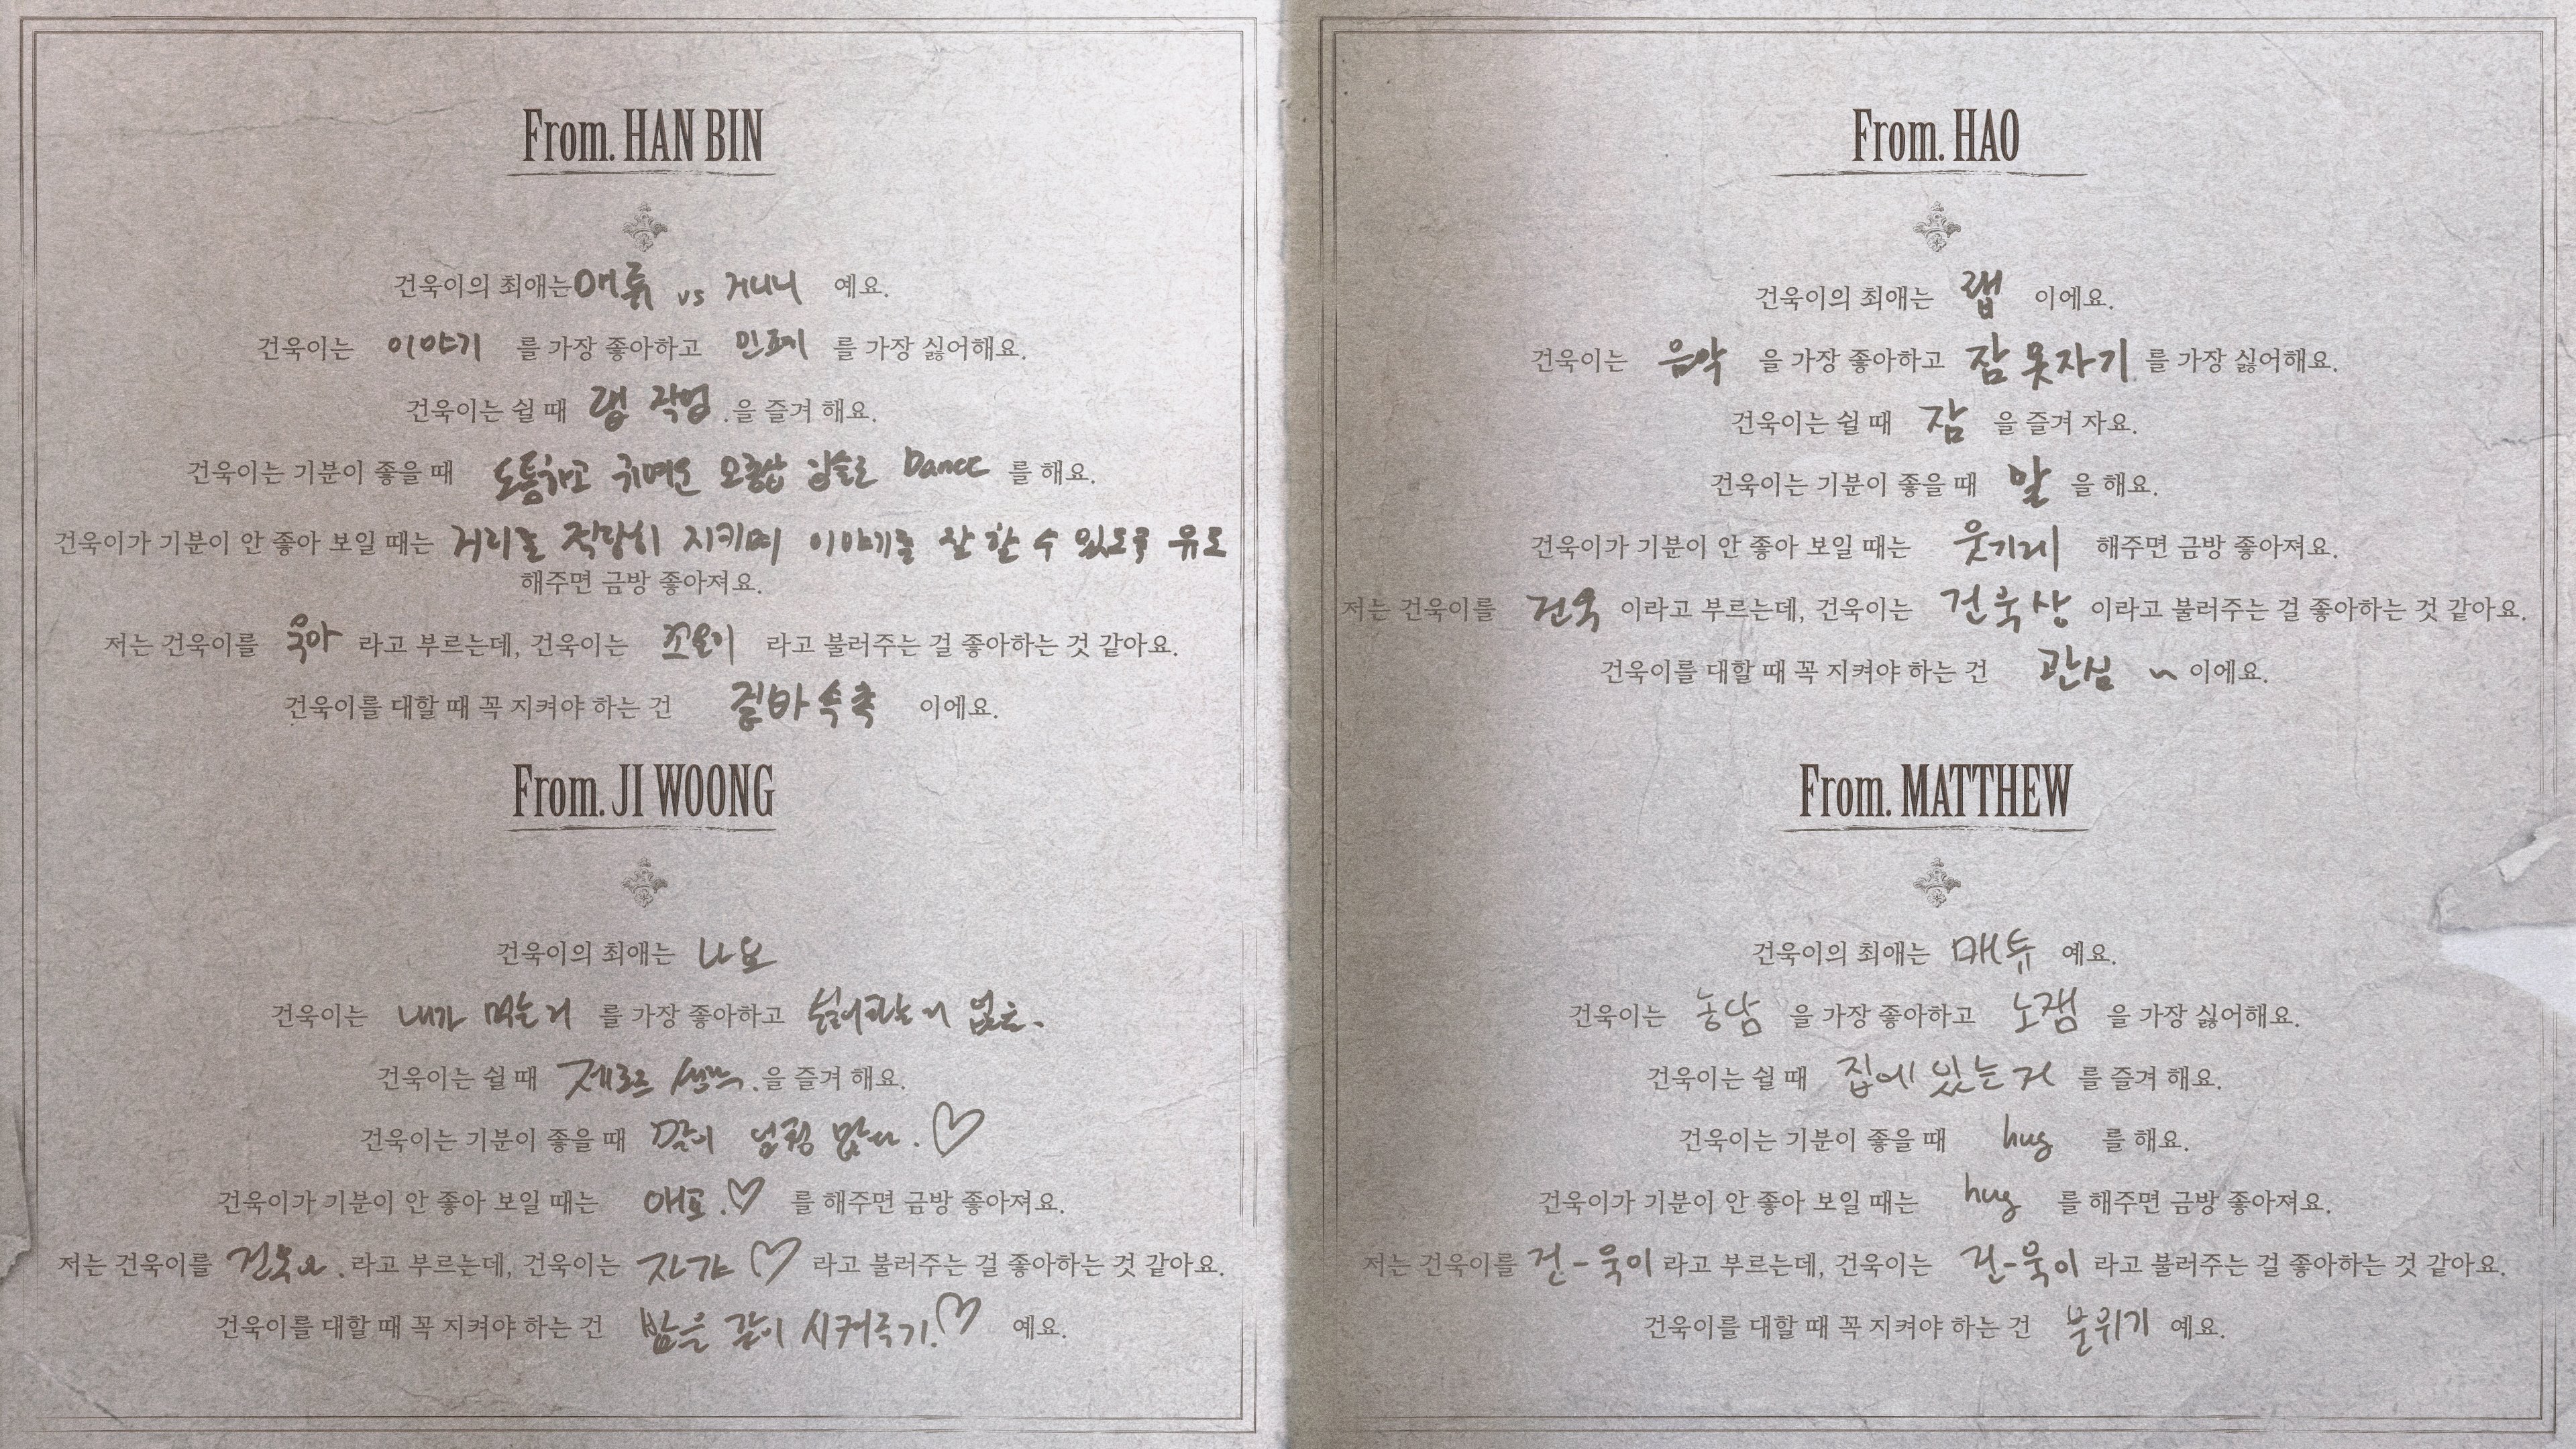 From. HAN BIN
건욱이의 최애는 매튜 vs 거니니 예요.
건욱이는 이야기 를 가장 좋아하고 민폐 를 가장 싫어해요.
건욱이는 쉴 때 랩 작업.을 즐겨 해요.
건욱이는 기분이 좋을 때 Dance 를 해요.
건욱이가 기분이 안 좋아 보일 때는 거리를 적당히 지키며 이야기를 잘 할 수 있도록 유도
해주면 금방 좋아져요.
저는 건욱이를 욱아 라고 부르는데, 건욱이는 라고 불러주는 걸 좋아하는 것 같아요.
건욱이를 대할 때 꼭 지켜야 하는 건 이에요.
From. JI WOONG
건욱이의 최애는 나요
건욱이는 내가 먹는거 를 가장 좋아하고 싫어하는거 없음.
건욱이는 쉴 때 .을 즐겨 해요.
건욱이는 기분이 좋을 때 말이 엄청 많다. ♡
건욱이가 기분이 안 좋아 보일 때는 애교.♡ 를 해주면 금방 좋아져요.
저는 건욱이를 라고 부르는데, 건욱이는 자갸 ♡ 라고 불러주는 걸 좋아하는 것 같아요.
건욱이를 대할 때 꼭 지켜야 하는 건 밥은 같이 시켜주기.♡ 예요.
From. HAO
건욱이의 최애는 랩 이에요.
건욱이는 음악 을 가장 좋아하고 잠 못자기 를 가장 싫어해요.
건욱이는 쉴 때 잠 을 즐겨 자요.
건욱이는 기분이 좋을 때 말 을 해요.
건욱이가 기분이 안 좋아 보일 때는 웃기게 해주면 금방 좋아져요.
저는 건욱이를 건욱 이라고 부르는데, 건욱이는 건욱상 이라고 불러주는 걸 좋아하는 것 같아요.
건욱이를 대할 때 꼭 지켜야 하는 건 관심 ~ 이에요.
From. MATTHEW
건욱이의 최애는 매튜 예요.
건욱이는 농담 을 가장 좋아하고 노잼 을 가장 싫어해요.
건욱이는 쉴 때 집에 있는거 를 즐겨 해요.
건욱이는 기분이 좋을 때 hug 를 해요.
건욱이가 기분이 안 좋아 보일 때는 hug 를 해주면 금방 좋아져요.
저는 건욱이를 건-욱이 라고 부르는데, 건욱이는 건-욱이 라고 불러주는 걸 좋아하는 것 같아요.
건욱이를 대할 때 꼭 지켜야 하는 건 분위기 예요.